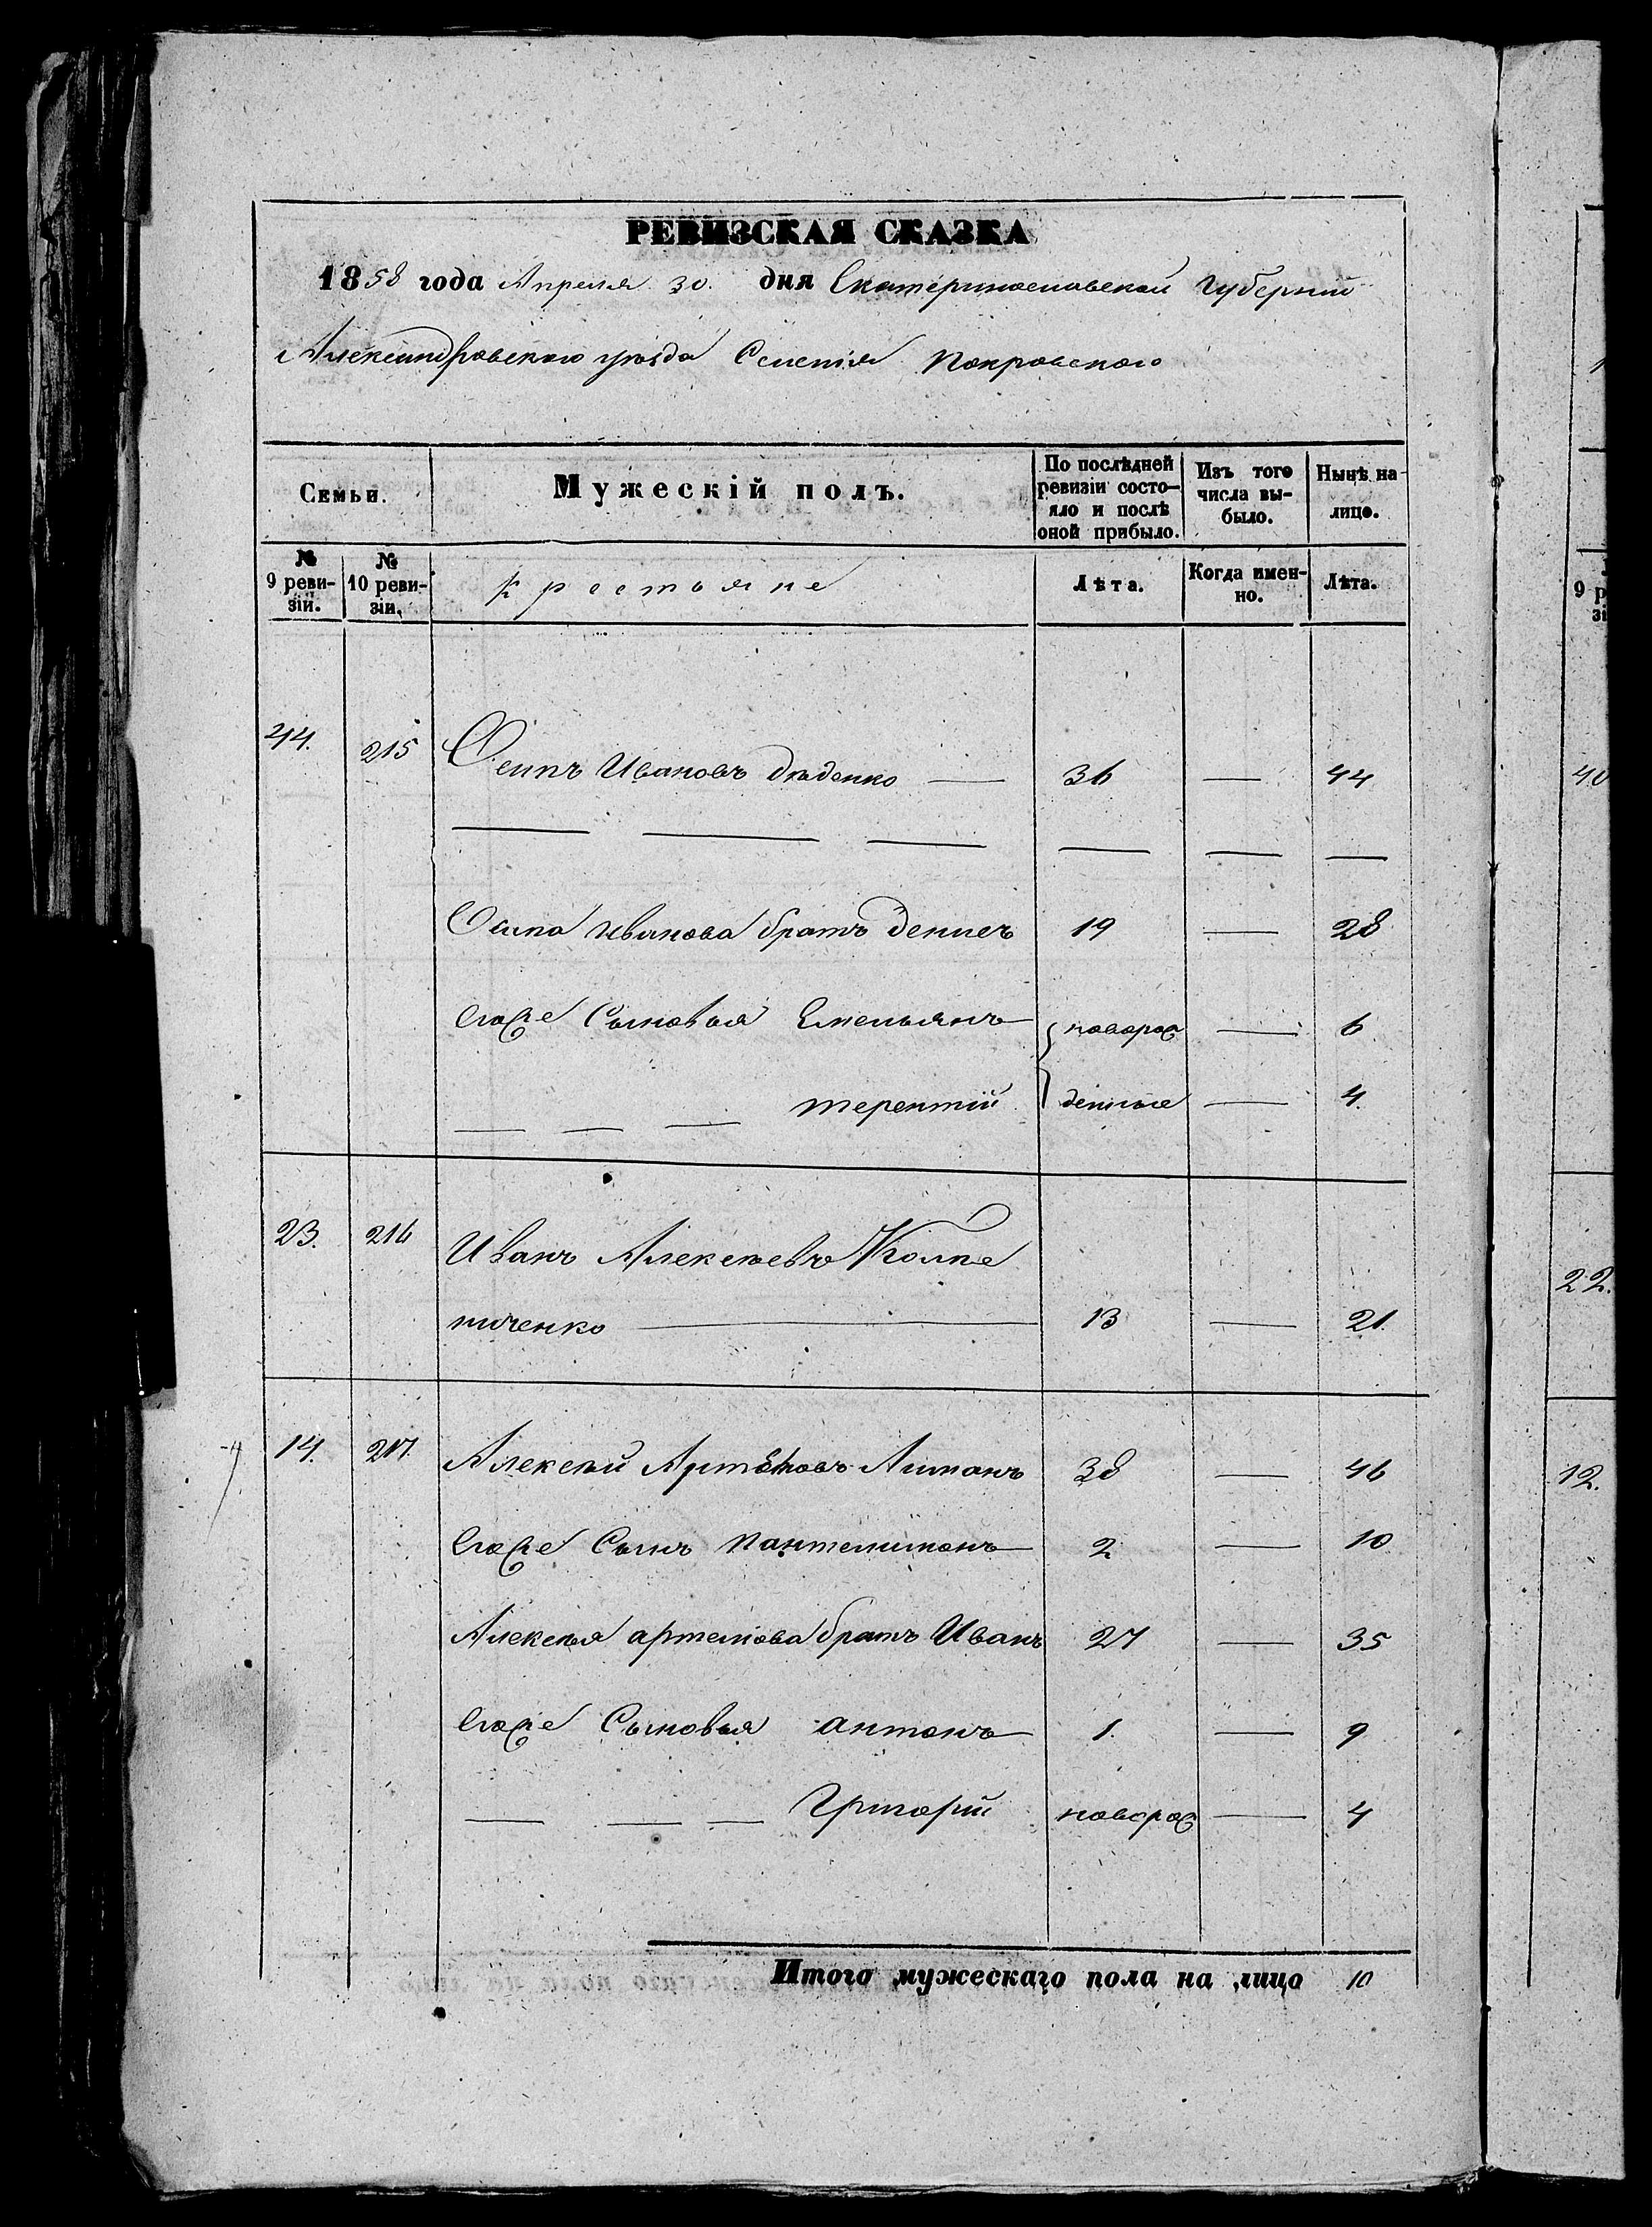 РЕВИЗСКАЯ СКАЗКА
1858 года Апреля 30. дня Екатеринославской Губерніи
Александровского уѣзда Селенія Покровского
Семьи. Мужескій полъ. По послѣдней ревизіи состо-яло и послѣ оной прибыло. Изъ того числа вы-было. Нынѣ на-лицо.
№ 9 реви-зіи. № 10 реви-зіи. крестьяне Лѣта. Когда имен-но. Лѣта.
44. 215 Осипъ Ивановъ Дѣденко — 36 — 44
Осипа Иванова братъ Денисъ 19 — 28
Егоже Сыновья Емельянъ новорож — 6
терентій деные — 4.
23. 216 Иванъ Алексѣевъ Колпе
ниченко 13 — 21.
14. 217. Алексѣй Артёмовъ Литанъ 38 — 46
Егоже Сынъ Пантелимонъ 2 — 10
Алексѣя артемова братъ Иванъ 27 — 35
Егоже Сыновья антонъ 1. — 9
Григорій новорож — 4
Итого мужескаго пола на лицо 10
9 р
зі
40
22.
12.